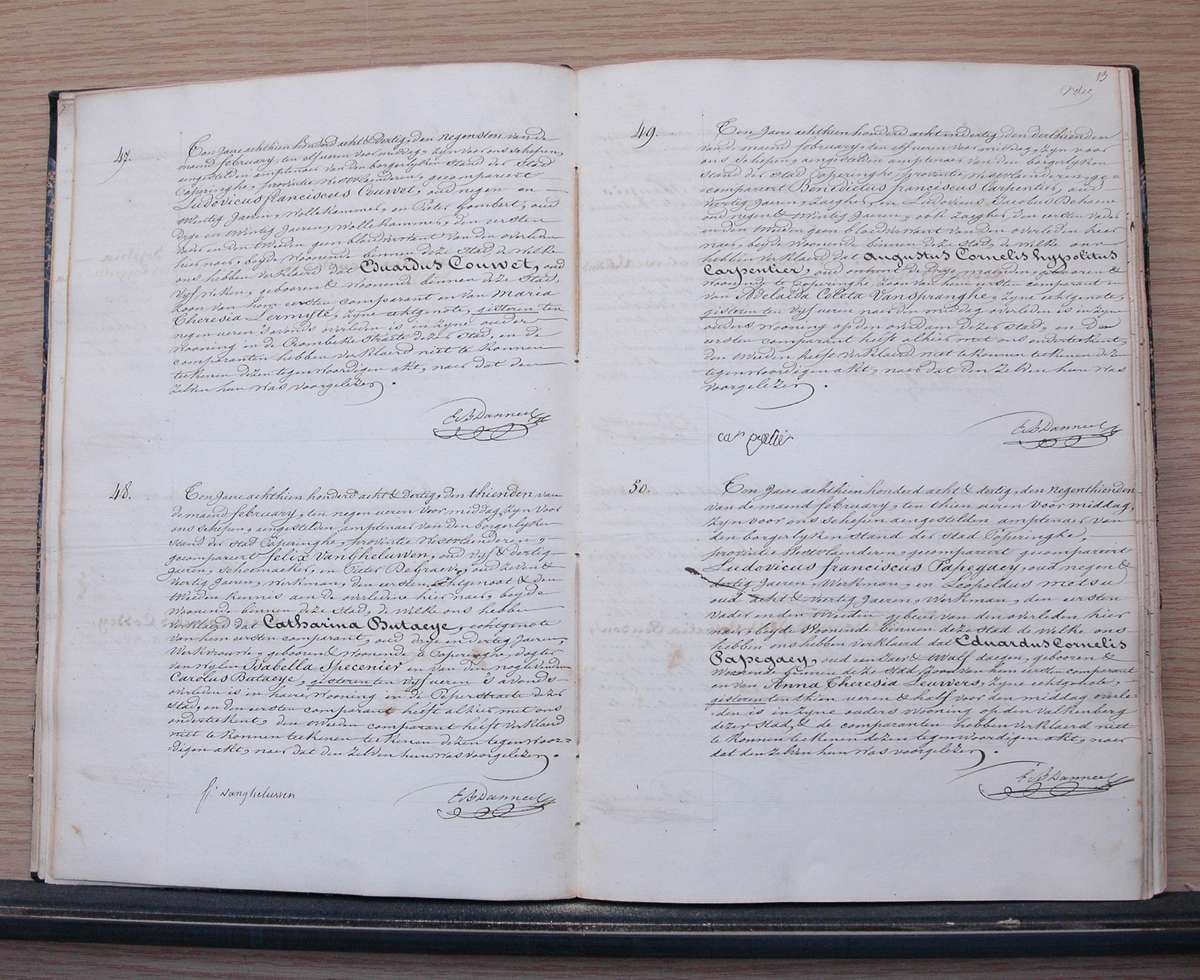 47.
Ten Jaere achthien honderd acht & dertig, den negensten van de
maend february, ten elf ueren voor middag, zyn voor ons schepen,
aengestelden amptenaer van den borgerlyken Stand der Stad
Poperinghe, provintie Westvlaenderen, gecompareert
Ludovicus franciscus Couwet, oud negen en
Veertig Jaeren, Wollekammer, en Pieter Gombert, oud
Drye en Veertig Jaeren, Wollekammer, den eersten
Vader en den tweeden geen bloedverwant van den overleden
hier naer, beyde Woonende binnen deze Stad, de Welke
ons hebben verklaerd dat Eduardus Couwet, oud
Vyf weken, gebooren & Woonende binnen deze Stad,
Zoon van hem eersten comparant en van Maria
Theresia Lermyte, zyne echtgenote, gisteren ten
negen ueren s'avonds overleden is in zyne ouders
Wooning in de Bombeke Straete dezer Stad, en de
comparanten hebben verklaerd niet te konnen
teekenen dezen tegenwoordigen akt, naer dat den
Zelven hun was voorgelezen.
48.
Ten Jaere achthien honderd acht & dertig, den thienden van
de maend february, ten negen ueren voor middag, zyn voor
ons schepen, aengestelden amptenaer van den borgerlyken
Stand der Stad Poperinghe, provintie Westvlaenderen,
gecompareert felix Vangheluwen, oud vyf & dertig
Jaeren, Schoemaeker, en Pieter Degraeve, oud zeven &
Veertig Jaeren, Werkman, den eersten echtgenoot & den
tweeden kennis aen de overledene hier naer, beyde
Woonende binnen deze Stad, de Welke ons hebben
verklaerd dat Catharina Butaeye, echtgenote
van hem eersten comparant, oud drye en dertig Jaeren,
Werkvrouw, gebooren & Woonende te Poperinghe, dogter
van wylen Isabella Specenier en van den nog levenden
Carolus Butaeye, gisteren ten vyf ueren s'avonds
overleden is in haere wooning in de Peperstraete dezer
Stad, en den eersten comparant heeft alhier met ons
onderteekent, den tweeden comparant heeft verklaerd
niet te konnen teekenen dezen tegenwoor=
digen akt, naer dat den zelven hun was voorgelezen.
f: vangheluwen
13
49.
Ten Jaere achthien honderd acht en dertig, den derthienden
van de maend february, ten elf ueren voor middag, zyn voor
ons Schepen, aengestelden amptenaer van den borgerlyken
Stand der Stad Poperinghe, provintie Westvlaenderen, ge=
compareert Benedictus franciscus Carpentier, oud
Veertig Jaeren, Zaegher, en Ludovicus Jacobus
oud negen & Veertig Jaeren, ook zaegher, den eersten vader
en den tweeden geen bloedverwant van den overleden hier
naer, beyde Woonende binnen deze Stad, de Welke ons
hebben verklaerd dat Augustus Cornelis hypolitus
Carpentier, oud ontrent drye maenden, gebooren &
woonende te Poperinghe, zoon van hem eersten comparant en
van Adelaida Coleta Van Spranghe, zyne echtgenote,
gisteren ten vyf ueren naer den middag overleden is in zyne
ouders wooning op den overdam dezer Stad, en den
eersten comparant heeft alhier met ons onderteekent,
den tweeden heeft verklaerd niet te konnen teekenen dezen
tegenwoordigen akt, naer dat den zelven hun was
voorgelezen.
50.
Ten Jaere achthien honderd acht & dertig, den negenthienden
van de maend february, ten thien ueren voor middag,
Zyn voor ons schepen aengestelden amptenaer van
den borgerlyken Stand der Stad Poperinghe,
provintie Westvlaenderen, gecompareert gecompareert
Ludovicus franciscus Papegaey, oud negen &
dertig Jaeren, Werkman, en Leopoldus
oud acht & veertig Jaeren, Werkman, den eersten
Vader en den tweeden gebuer van den overleden hier
naer, beyde Woonende binnen deze Stad, de Welke ons
hebben ons hebben verklaerd dat Eduardus Cornelis
Papegaey, oud een Jaer & twaelf dagen, gebooren &
Woonende binnen deze Stad, zoon van hem eersten comparant
en van Anna Theresia Leuwers, zyne echtgenote,
gisteren ten thien ueren & half voor den middag overle=
den is in zyne ouders Wooning op den Valkenberg
dezer Stad, & de comparanten hebben verklaerd niet
te konnen teekenen dezen tegenwoordigen akt, naer
dat den zelven hun was voorgelezen.